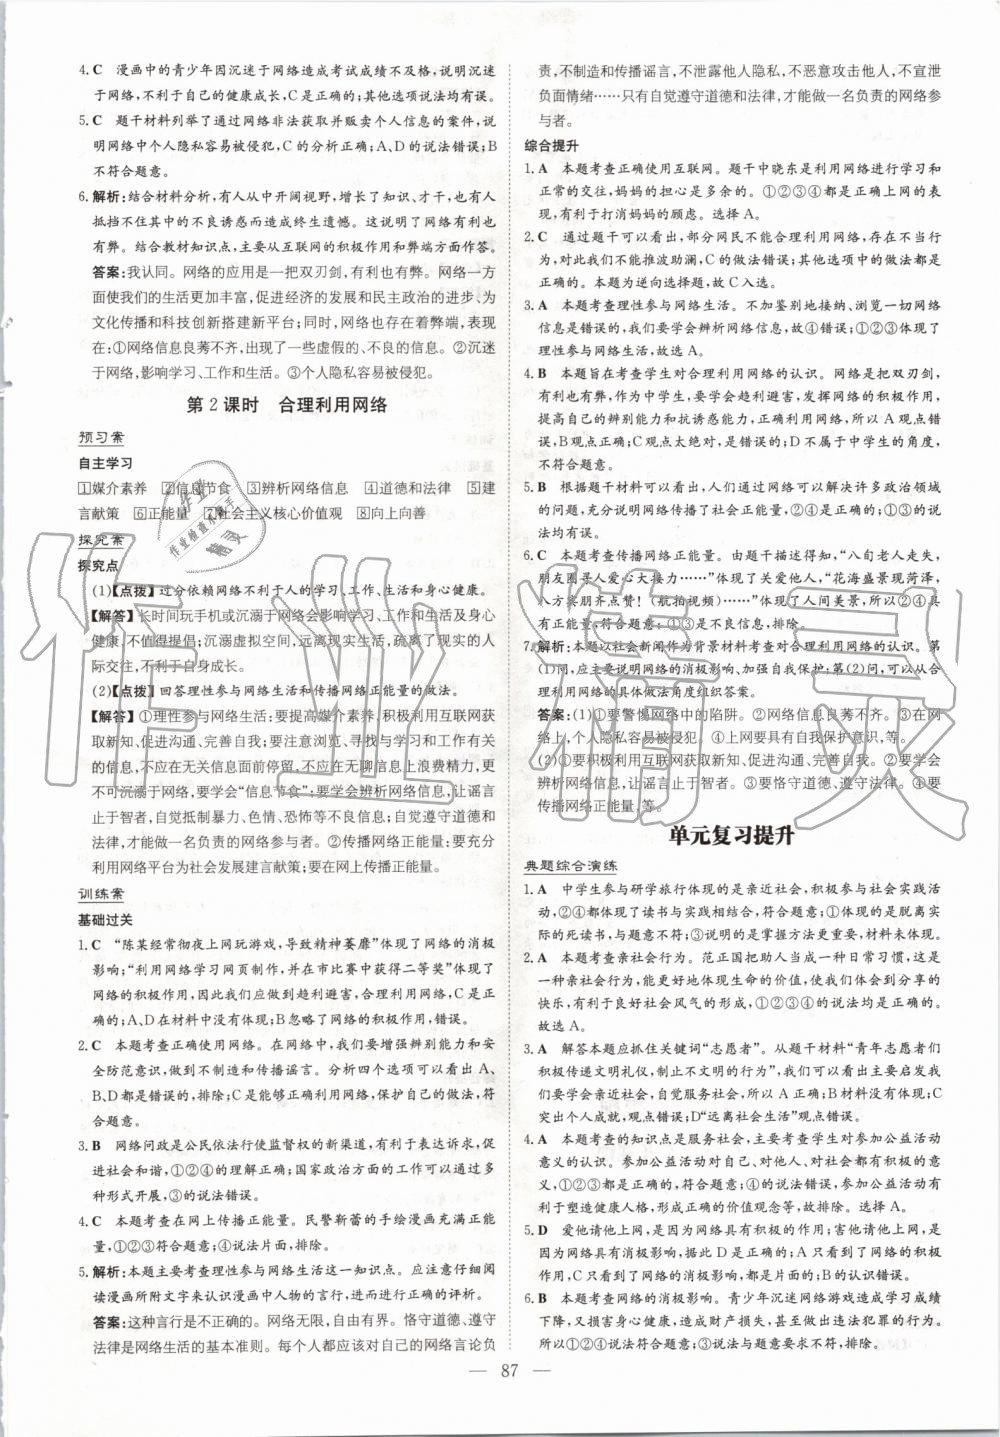 4. C　漫画中的青少年因沉迷于网络造成考试成绩不及格,说明沉迷
于网络,不利于自己的健康成长,C是正确的;其他选项说法均有误。
5. C　题干材料列举了通过网络非法获取并贩卖个人信息的案件,说
明网络中个人隐私容易被侵犯,C的说法正确;A、D的说法错误;B
不符合题意。
6. 解析:结合材料分析,有人从中开阔视野,增长知识、才干,也有人
抵挡不住其中的不良诱惑而造成终生遗憾。这说明了网络有利也
有弊。结合教材知识点,主要从互联网的积极作用和弊端方面作答。
答案:我认同。网络的应用是一把双刃剑,有利也有弊。网络一方
面使我们的生活更加丰富,促进经济的发展和民主政治的进步、为
文化传播和科技创新搭建新平台;同时,网络也存在着弊端,表现
在:①网络信息良莠不齐,出现了一些虚假的、不良的信息。②沉迷
于网络,影响学习、工作和生活。③个人隐私容易被侵犯。
第2课时　合理利用网络
预习案
自主学习
①媒介素养　②信息节食　③辨析网络信息　④道德和法律　⑤建
言献策　⑥正能量　⑦社会主义核心价值观　⑧向上向善
探究案
探究点
(1)【点拨】过分依赖网络不利于人的学习、工作、生活和身心健康。
【解答】长时间玩手机或沉溺于网络会影响学习、工作和生活及身心
健康,不值得提倡;沉溺虚拟空间,远离现实生活,疏离了现实的人
际交往,不利于自身成长。
(2)【点拨】回答理性参与网络生活和传播网络正能量的做法。
【解答】①理性参与网络生活:要提高媒介素养,积极利用互联网获
取新知、促进沟通、完善自我;要注意浏览、寻找与学习和工作有关
的信息,不应在无关信息面前停留,不应在无聊信息上浪费精力,更
不可沉溺于网络,要学会“信息节食”;要学会辨析网络信息,让谣言
止于智者,自觉抵制暴力、色情、恐怖等不良信息;自觉遵守道德和
法律,才能做一名负责的网络参与者。②传播网络正能量:要充分
利用网络平台为社会发展建言献策;要在网上传播正能量。
训练案
基础过关
1. C　“陈某经常彻夜上网玩游戏,导致精神萎靡”体现了网络的消极
影响;“利用网络学习网页制作,并在市比赛中获得二等奖”体现了
网络的积极作用,因此,我们应当做到趋利避害,合理利用网络,C是正
确的;A、D在材料中没有体现;B忽略了网络的积极作用,错误。
2. C　本题考查正确使用网络。在网络中,我们要增强辨别能力和安
全防范意识,做到不制造和传播谣言。分析四个选项可以看出A、
B、D都是错误的,排除;C是能够正确利用网络、保护自己的做法,符
合题意。
3. B　网络问政是公民依法行使监督权的新渠道,有利于表达诉求,促
进社会和谐,①②④的理解正确;国家政治方面的工作可以通过多
种形式开展,③的说法错误。
4. C　本题考查在网上传播正能量。民警靳蕾的手绘漫画充满正能
量,①②③符合题意;④说法片面,排除。
5. 解析:本题主要考查理性参与网络生活这一知识点。应注意仔细阅
读漫画所附文字来认识漫画中人物的言行,进行正确的评析。
答案:这种言行是不对的。网络无限,自由有界。恪守道德、遵守
法律是网络生活的基本准则。每个人都应该对自己的网络言论负
责,不制造和传播谣言,不泄露他人隐私,不恶意攻击他人,不宣泄
负面情绪……只有自觉遵守道德和法律,才能做一名负责的网络参
与者。
综合提升
1. A　本题考查正确使用互联网。题干中晓东是利用网络进行学习和
正常的交往,妈妈的担心是多余的。①②③④都是正确上网的表
现,有利于打消妈妈的顾虑。选择A。
2. C　通过题干可以看出,部分网民不能合理利用网络,存在不当行
为,对此我们不能推波助澜,C的做法错误;其他选项中的做法都是
正确的。本题为逆向选择题,故C入选。
3. A　本题考查理性参与网络生活。不加鉴别地接纳、浏览一切网络
信息是错误的,我们要学会辨析网络信息,故④错误;①②③体现了
理性参与网络生活,故选A。
4. B　本题旨在考查学生对合理利用网络的认识。网络是把双刃剑,
有利也有弊,作为中学生,要学会趋利避害,发挥网络的积极作用,
提高自己的辨别能力和抗诱惑能力,正确利用网络,所以A观点错
误,B观点正确;C观点太绝对,是错误的;D不属于中学生的角度,
不符合题意。
5. B　根据题干材料可以看出,人们通过网络可以解决许多政治领域
的问题,充分说明网络传播了社会正能量,B的说法正确;其他选项
说法均有误。
6. C　本题考查传播网络正能量。由题干表述可知,“八旬老人走失,
朋友圈寻人爱心大接力……”体现了关爱他人,“花海盛景现菏泽,
人人共享齐点赞!(航拍视频)……”体现了人间美景,所以②④具
有正能量,符合题意;①③是不良信息,排除。
7. 解析:本题以社会新闻作为背景材料考查对合理利用网络的认识。第
(1)问,应主要说明网络的消极影响,加强自我保护;第(2)问,可以从合
理利用网络的具体做法角度组织答案。
答案:(1)①要警惕网络中的陷阱。②网络信息良莠不齐。③在网
络上,个人隐私容易被侵犯。④上网要具有自我保护意识,等。
(2)①要积极利用互联网获取新知、促进沟通、完善自我。②要学会
辨析网络信息,让谣言止于智者。③要恪守道德、遵守法律。④要
传播网络正能量,等。
单元复习提升
典题综合演练
1. A　中学生参与研学旅行体现的是亲近社会,积极参与社会实践活
动,②④都体现了读书与实践相结合,符合题意;①体现的是脱离实
际的死读书,与题意无关;③说明的是掌握方法更重要,材料未体现。
2. A　本题考查亲社会行为。范正国把助人当成一种日常习惯,这一
亲社会行为,能更好地体现生命的价值,使我们体会到分享的
快乐,有利于良好社会风气的形成,①②③④的说法均是正确的。
故选A。
3. A　解答本题应抓住关键词“志愿者”。从题干材料“青年志愿者们
积极传递文明礼仪,制止不文明的行为”,我们可以看出,这启发我
们要学会亲近社会,自觉服务社会,所以A正确;B材料没有体现;C
突出个人成就,观点错误;D“远离社会生活”观点错误。
4. A　本题考查的知识点是服务社会,主要考查学生对参加公益活动
意义的认识。参加公益活动,对自己、对他人、对社会都有积极的意
义,①②③都符合题意;④的说法错误,应排除。参加公益活动有利
于塑造健康人格,形成正确的价值观念等,故应选择A。
5. D　爱他请他上网,是因为网络具有积极的作用;害他请他上网,是
因为网络具有消极影响,据此D是正确的;A、C的说法只看到网络
的积极作用,忽视网络的消极作用,是错误的;B的说法错误。
6. B　本题考查网络的消极影响。青少年沉迷网络游戏造成学习成绩
下降,又因巨额消费,造成财产损失,甚至出现违法犯罪的行为。
所以①②④符合题意;③说法与题意要求不符,排除。
87